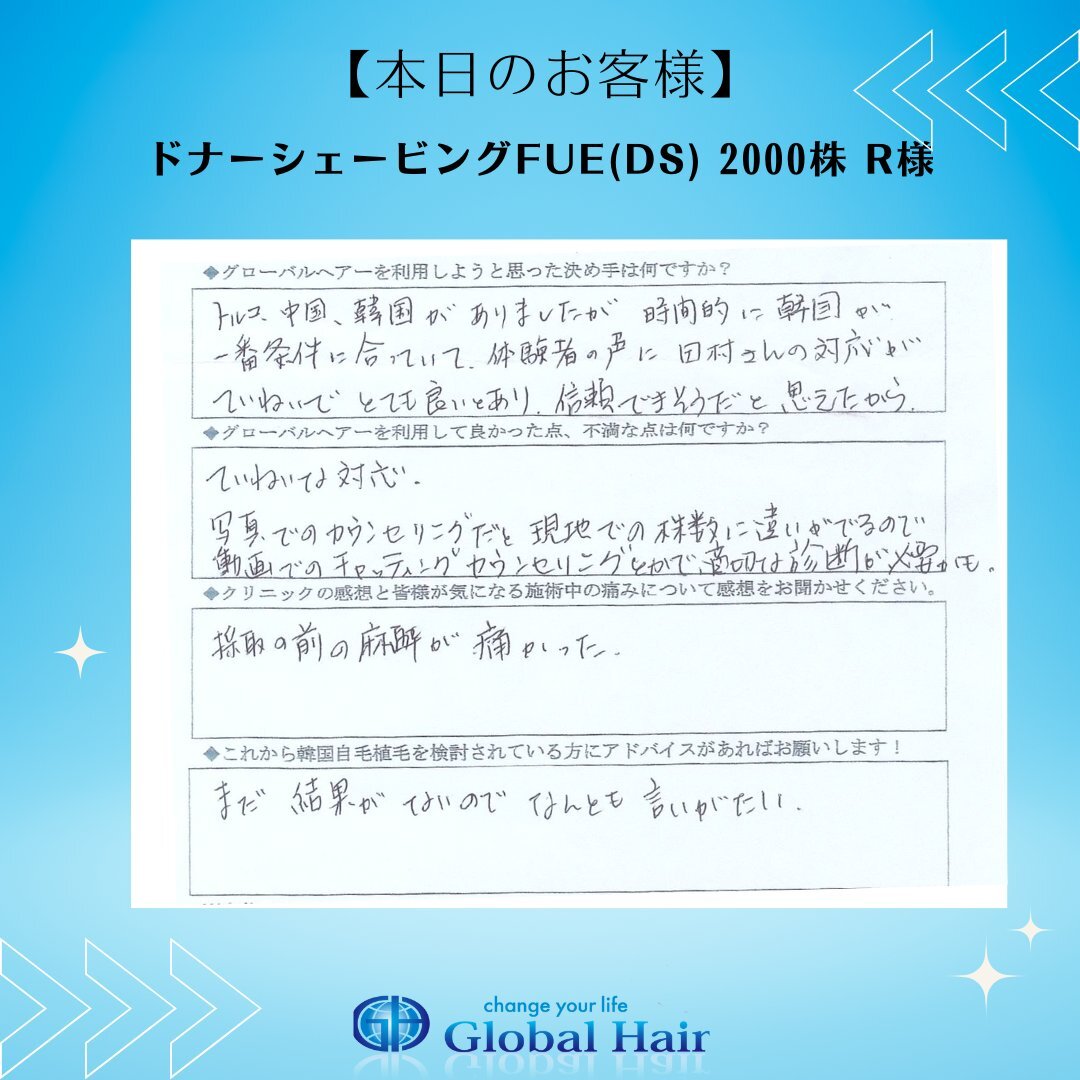 【本日のお客様】
ドナーシェービングFUE(DS) 2000株 R様
◆グローバルヘアーを利用しようと思った決め手は何ですか？
トルコ、中国、韓国がありましたが 時間的に韓国が
一番条件に合っていて、体験者の声に田村さんの対応が
ていねいでとても良いとあり、信頼できそうだと思えたから。
◆グローバルヘアーを利用して良かった点、不満な点は何ですか？
ていねいな対応。
写真でのカウンセリングだと現地での株数に違いがでるので
動画でのチャッティングカウンセリングとかで、適切な診断が必要かも。
◆クリニックの感想と皆様が気になる施術中の痛みについて感想をお聞かせください。
採取の前の麻酔が痛かった。
◆これから韓国自毛植毛を検討されている方にアドバイスがあればお願いします！
まだ結果がでないのでなんとも言いがたい。
change your life
Global Hair